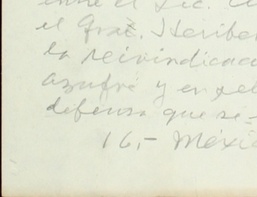 entre el Lic.
el Gral. Heriber
la reivindicac
azufre y en el
defensa que se-
16,- Méxic